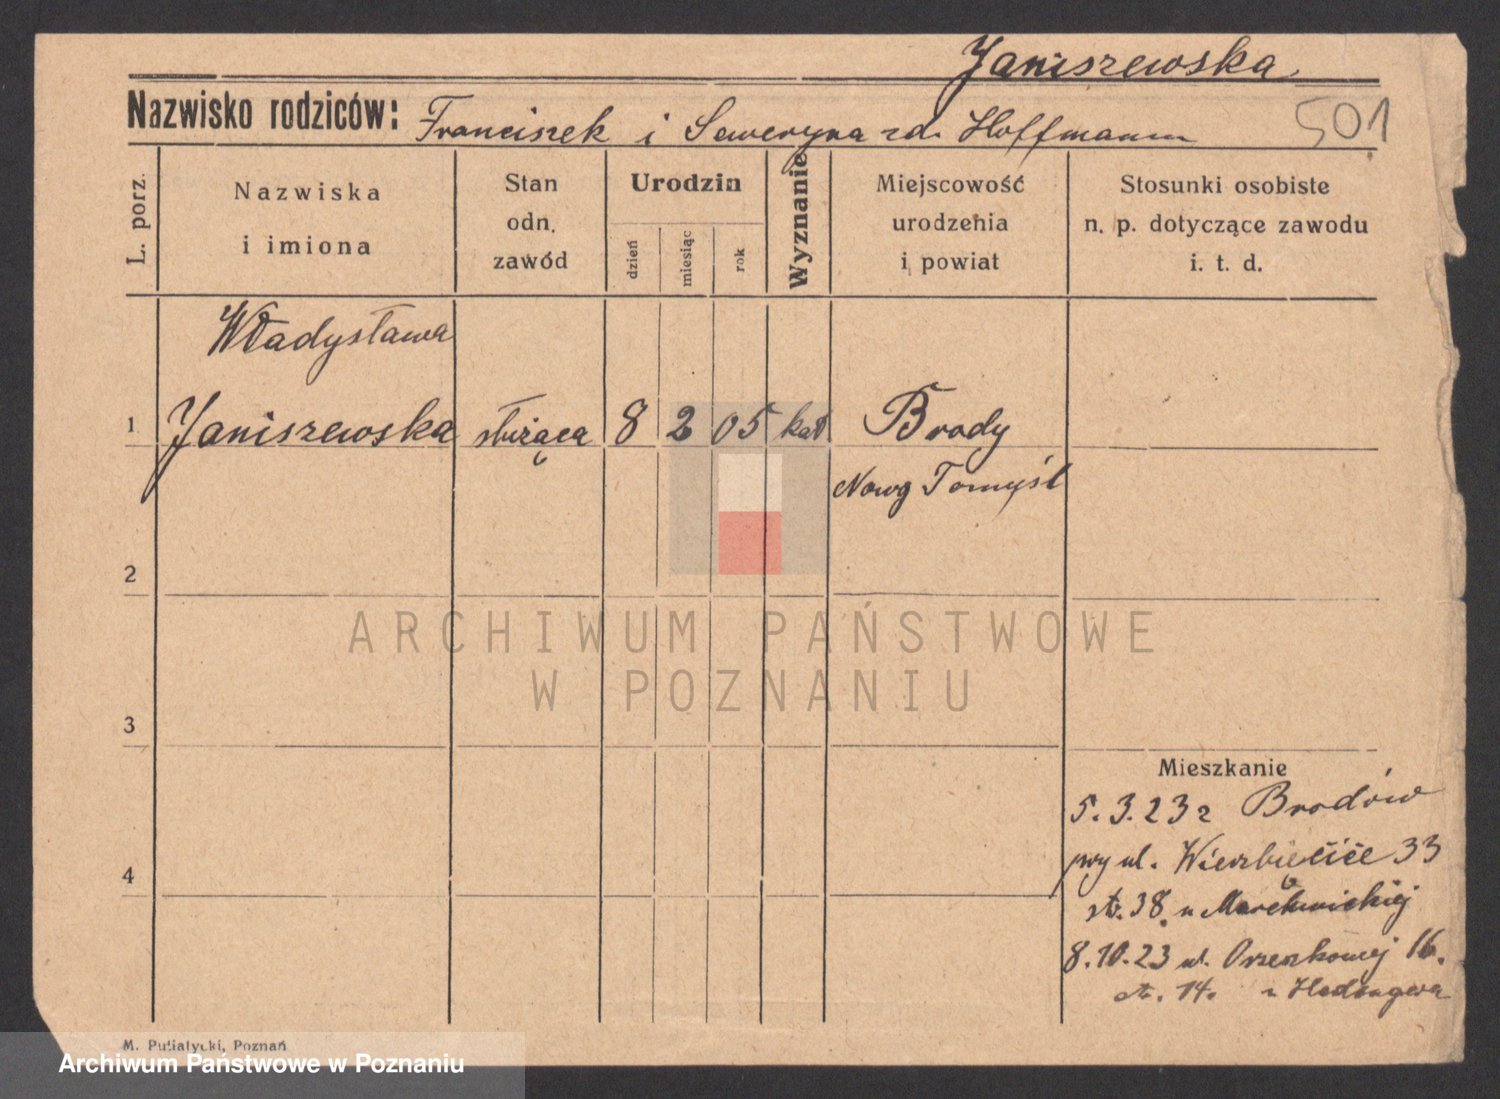 Janiszewska
Nazwisko rodziców: Franciszek i Seweryna zd. Hoffmann
501
L. porz.
Nazwiska
i imiona
Stan
odn.
zawód
Urodzin
dzień
miesiąc
rok
Wyznanie
Miejscowość
urodzenia
i powiat
Stosunki osobiste
n. p. dotyczące zawodu
i. t. d.
Władysława
1 Janiszewska służąca 8 2 05 kat Brody
Nowy Tomyśl
2
3
4
ARCHIWUM PAŃSTWOWE
W POZNANIU
Mieszkanie
5.3.23 z Brodów
przy ul. Wierzbięcice 33
str. 38. u
8.10.23 ul. Orzeszkowej 16.
str. 14.
M. Putiatycki, Poznań
Archiwum Państwowe w Poznaniu